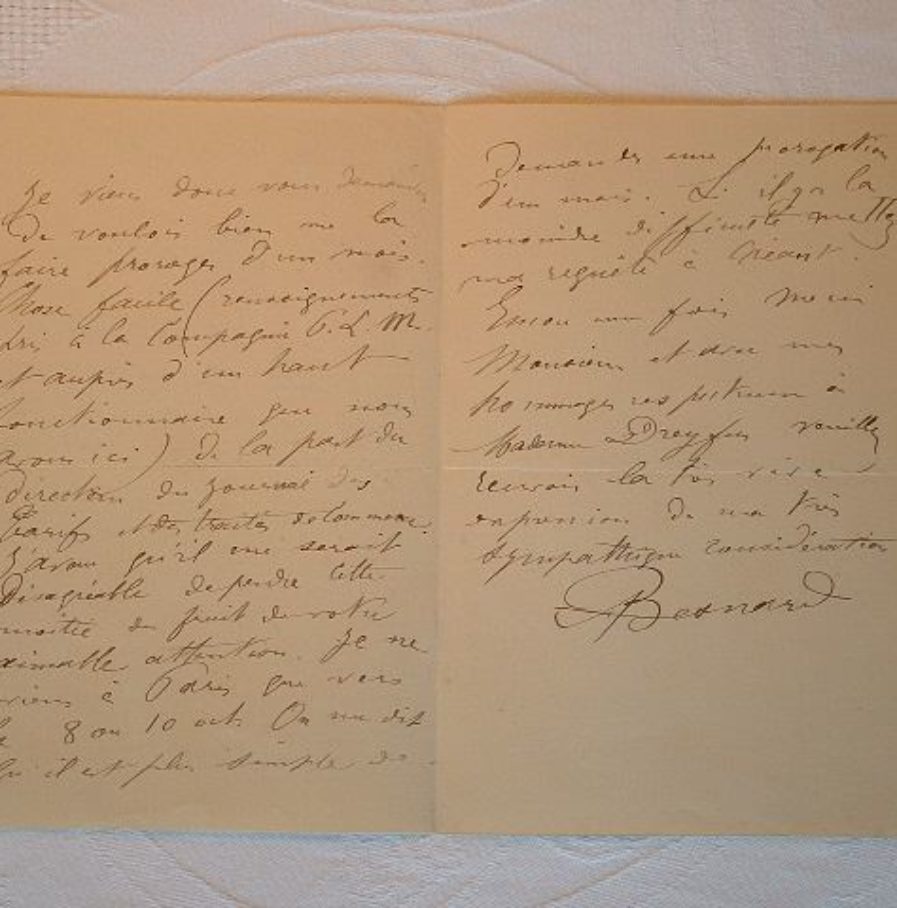 Je viens donc vous demander
de vouloir bien me la
faire proroger d'un mois.
Chose facile (renseignements
pris à la Compagnie P. L. M.
et auprès d'un haut
fonctionnaire que nous
avons ici) de la part du
directeur du Journal des
Tarifs et des traités de commerce.
J'avoue qu'il me serait
Désagréable de perdre cette
moitié du fruit de votre
aimable attention. Je ne
viens à Paris que vers
le 8 ou 10 oct. On me dit
qu'il est plus simple de
Demander une prorogation
d'un mois. Si il y a la
moindre difficulté mettez
ma requête à néant.
Encore une fois Merci
Monsieur et avec mes
hommages respectueux à
Madame Dreyfus veuillez
recevoir la très vive
expression de ma très
sympathique considération
Besnard